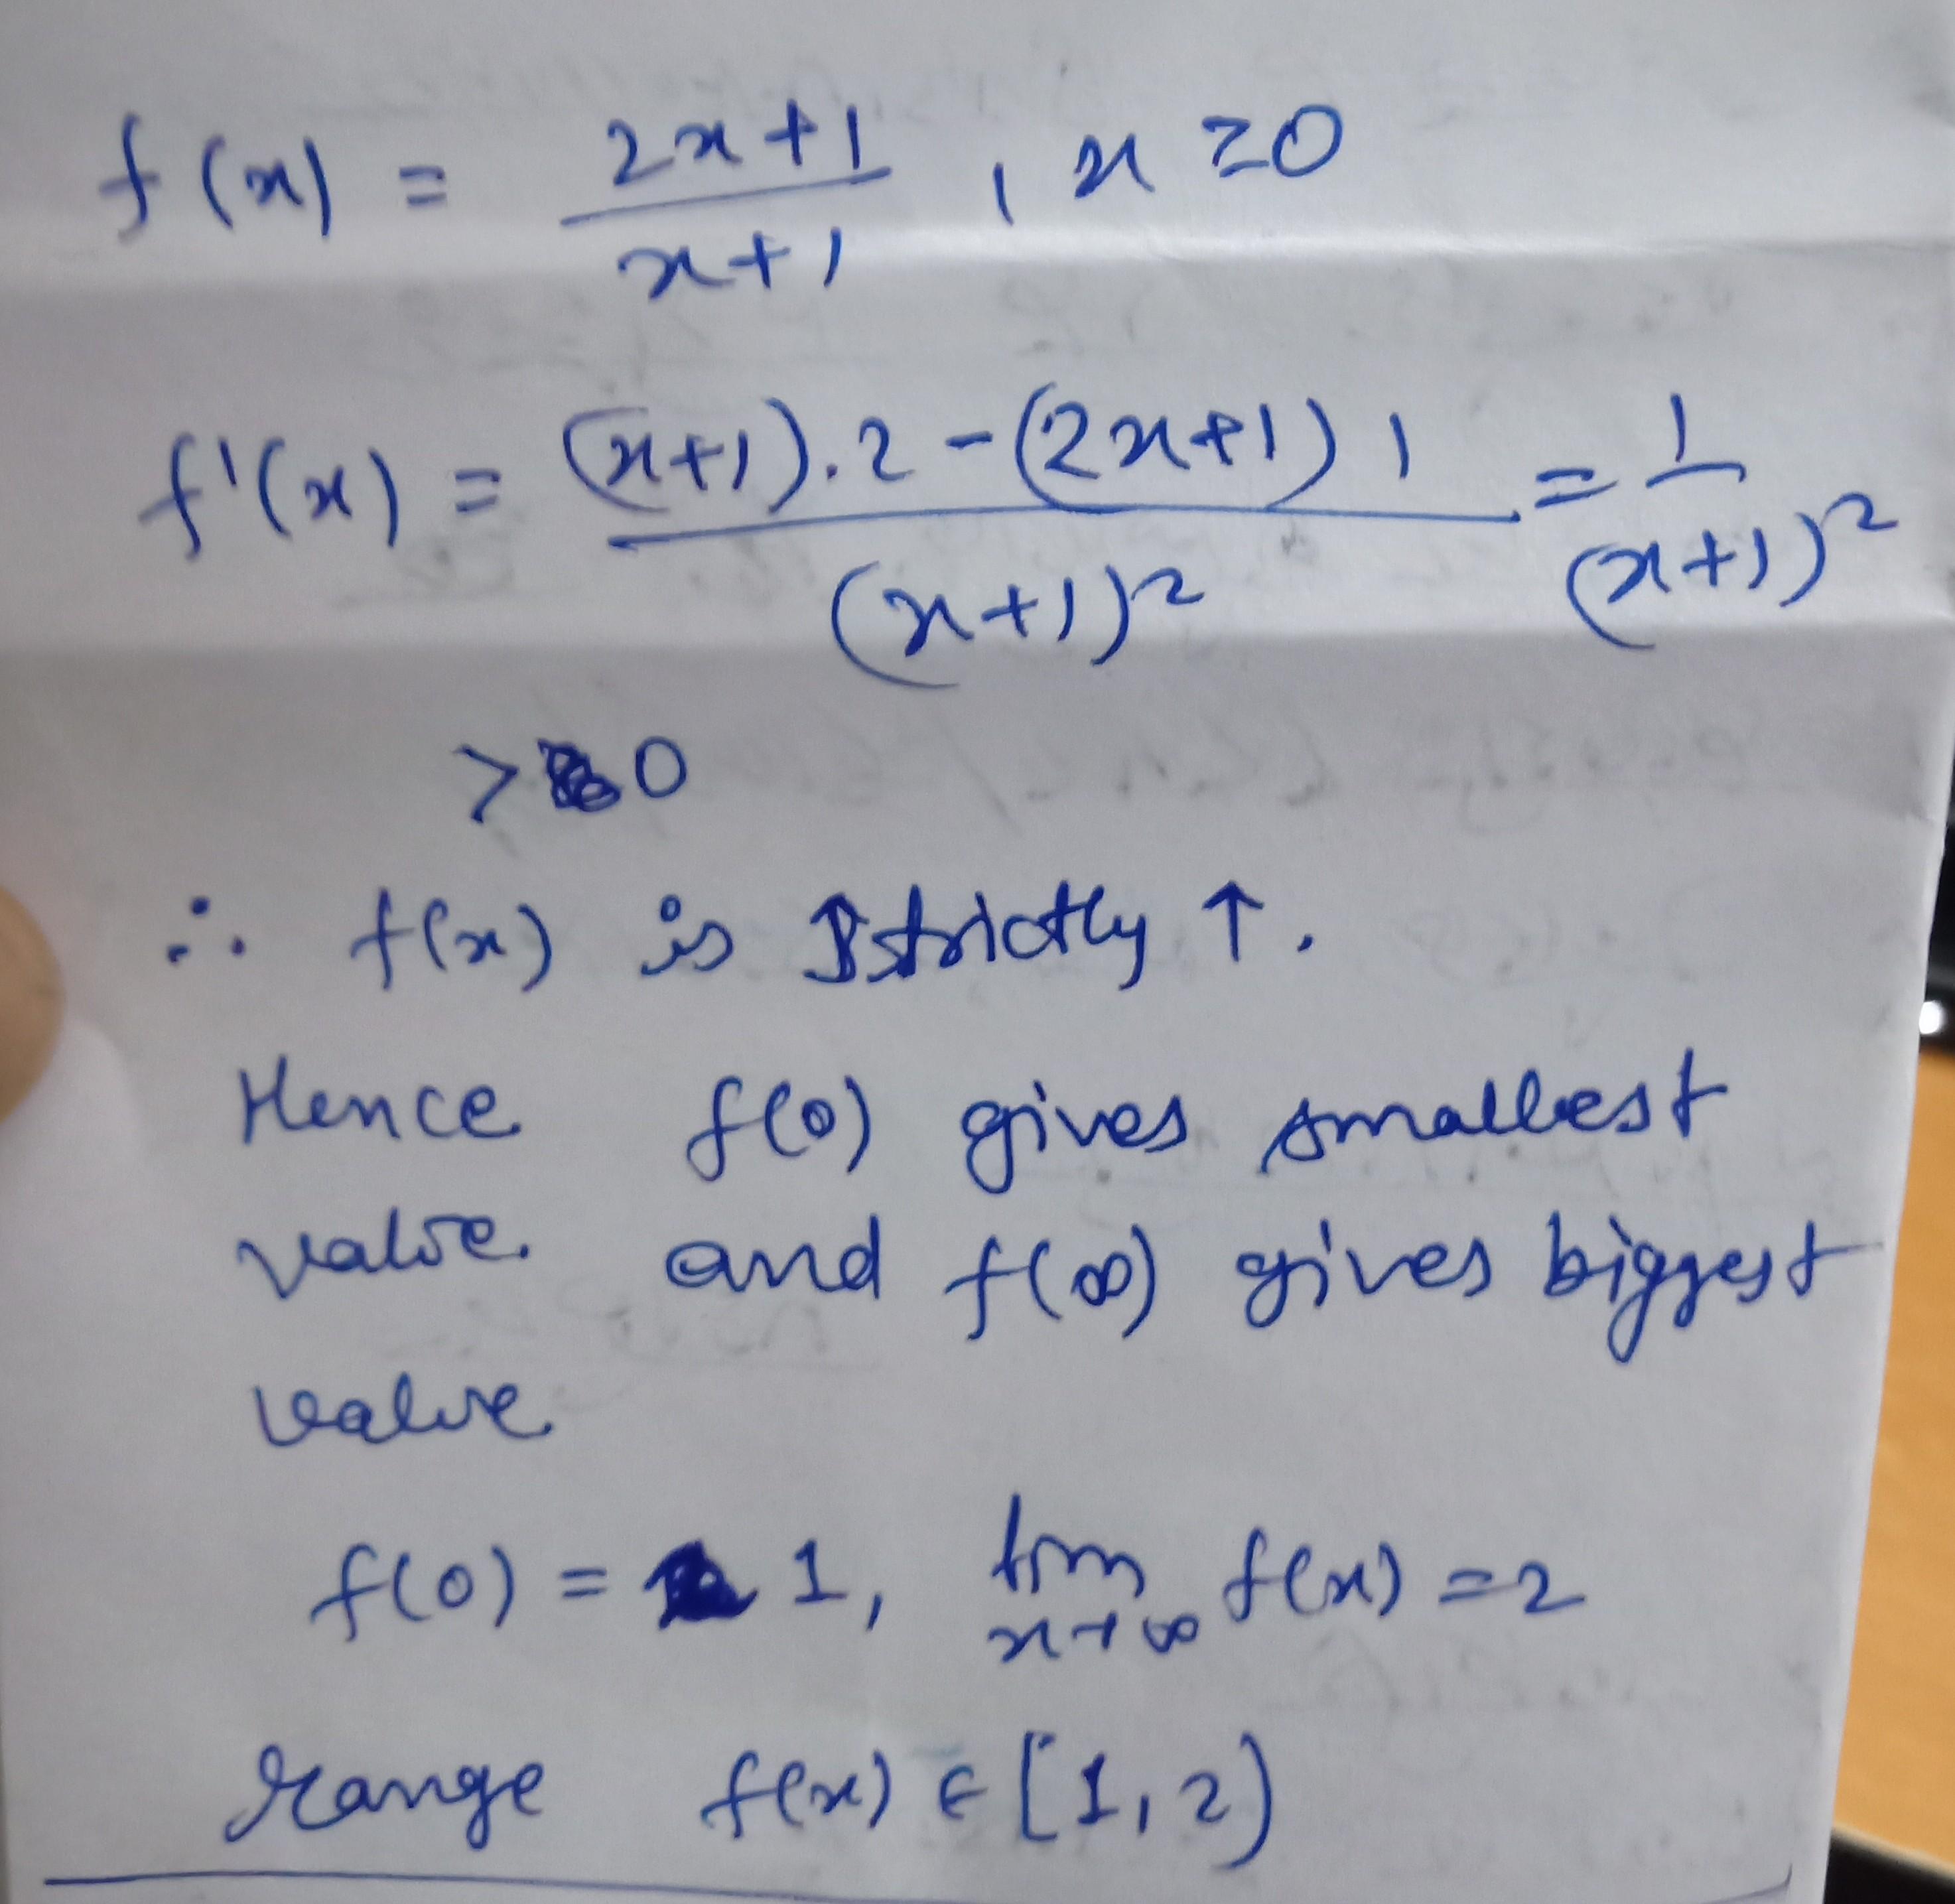 f(x) = (2x+1)/(x+1) , x ≥ 0
f'(x) = ((x+1).2 - (2x+1) 1)/(x+1)² = 1/(x+1)²
> 0
∴ f(x) is strictly ↑.
Hence f(0) gives smallest
value and f(∞) gives biggest
value
f(0) = 1, lim x→∞ f(x) = 2
range f(x) ∈ [1, 2)